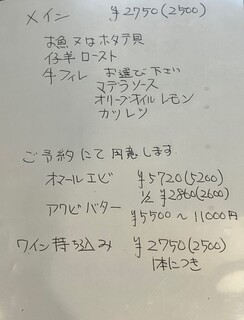 メイン ¥2750(2500)
お魚又はホタテ貝
仔羊ロースト
牛フィレ お選び下さい
マデラソース
オリーブオイルレモン
カツレツ
ご予約にて用意します
オマールエビ ¥5720(5200)
1/2 ¥2860(2600)
アワビバター ¥5500〜11000円
ワイン持ち込み ¥2750(2500)
1本につき